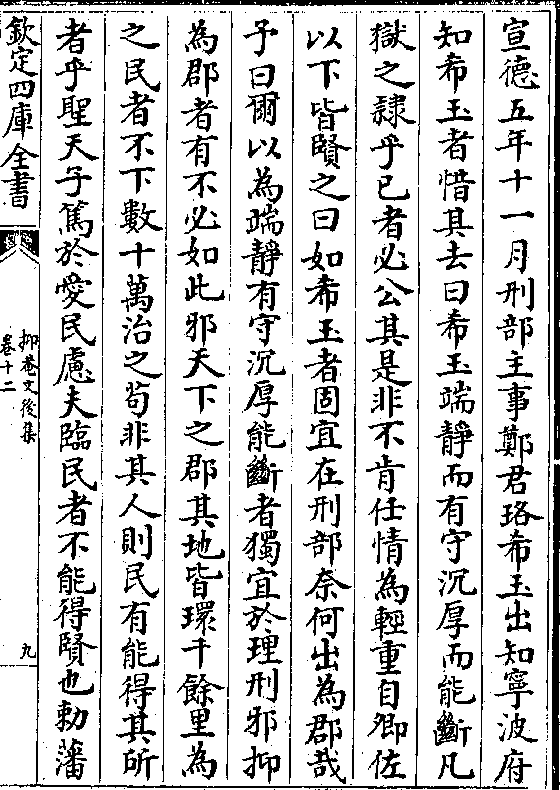 宣德五年十一月刑部主事鄭君珞希玉出知寧波府
知希玉者惜其去曰希玉端靜而有守沉厚而能斷凡
獄之隸乎已者必公其是非不肯任情為輕重自卿佐
以下皆賢之曰如希玉者固宜在刑部奈何出為郡哉
予曰爾以為端靜有守沉厚能斷者獨宜於理刑邪抑
為郡者有不必如此邪天下之郡其地皆環千餘里為
之民者不下數十萬治之苟非其人則民有能得其所
者乎聖天子篤於愛民慮夫臨民者不能得賢也勅藩
欽定四庫全書
抑菴文後集
卷十二
九